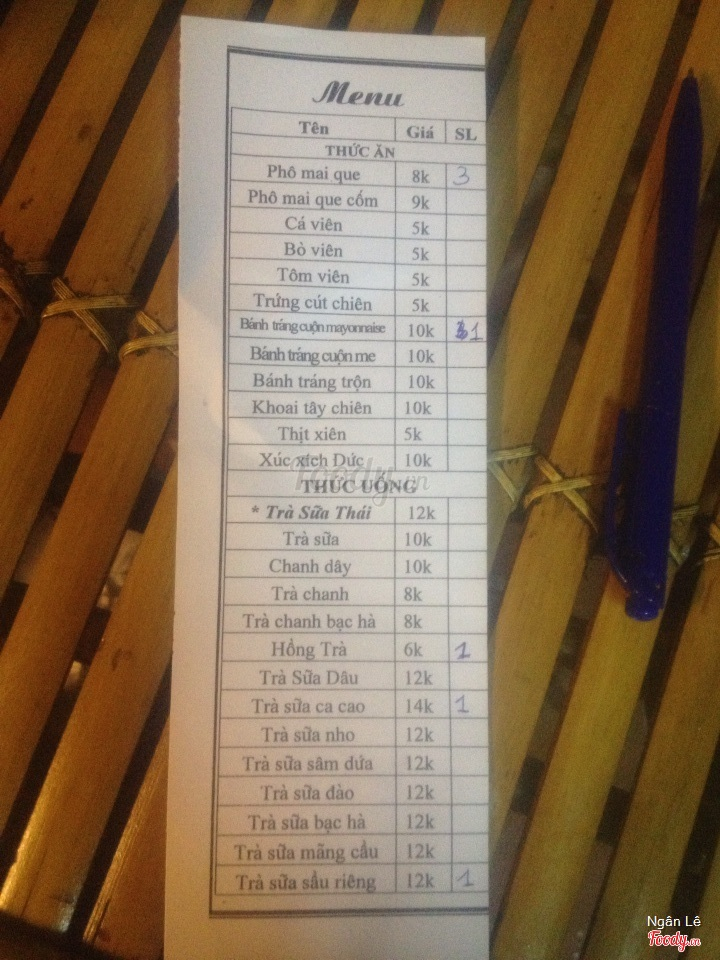 Menu
Tên Giá SL
THỨC ĂN
Phô mai que 8k 3
Phô mai que cốm 9k
Cá viên 5k
Bò viên 5k
Tôm viên 5k
Trứng cút chiên 5k
Bánh tráng cuộn mayonnaise 10k 1
Bánh tráng cuộn me 10k
Bánh tráng trộn 10k
Khoai tây chiên 10k
Thịt xiên 5k
Xúc xích Đức 10k
Foody.vn
THỨC UỐNG
* Trà Sữa Thái 12k
Trà sữa 10k
Chanh dây 10k
Trà chanh 8k
Trà chanh bạc hà 8k
Hồng Trà 6k 1
Trà Sữa Dâu 12k
Trà sữa ca cao 14k 1
Trà sữa nho 12k
Trà sữa sâm dứa 12k
Trà sữa đào 12k
Trà sữa bạc hà 12k
Trà sữa mãng cầu 12k
Trà sữa sầu riêng 12k 1
Ngân Lê
Foody.vn